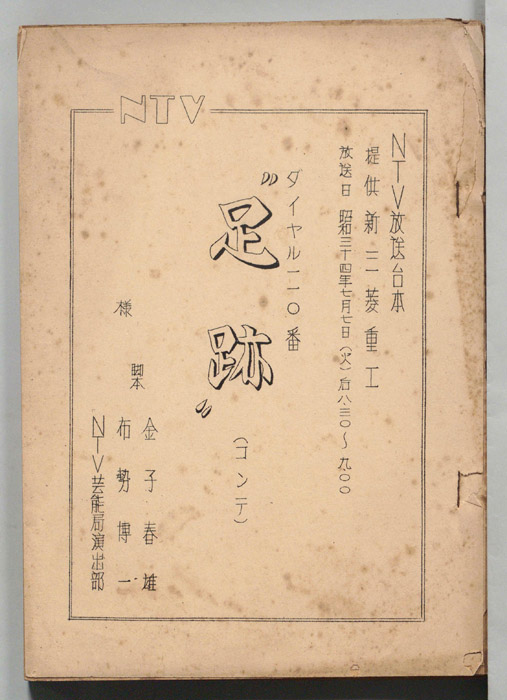 NTV
NTV放送台本
提供 新三菱重工
放送日 昭和三十四年七月七日(火)后八.三〇〜九.〇〇
ダイヤル一一〇番
〝足跡〟
(コンテ)
脚本
金子春雄
布勢博一
様
NTV芸能局演出部